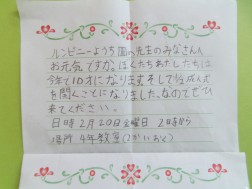 ルンビニーようち園の先生のみなさんへ
お元気ですか。ぼくたちわたしたちは
今年で10才になります。そして½成人式
を開くことになりました。なのでぜひ
来てください。
日時 2月20日金曜日 2時から
場所 4年教室(2かいおく)